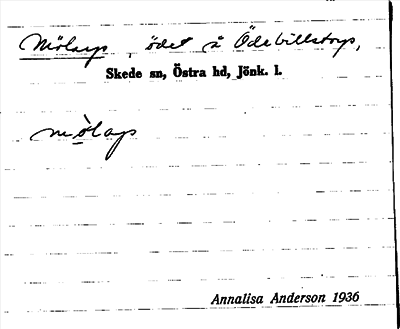 Mölarp, ödet å Ödebillstorp,
Skede sn, Östra hd, Jönk. l.
mòlap
Annalisa Anderson 1936